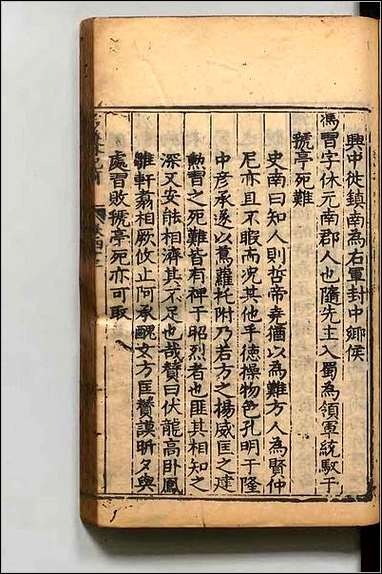 興中徙鎮南為右軍封中鄉侯
馮習字休元南郡人也隨先主入蜀為領軍統馭于
猇亭死難
史南曰知人則哲帝堯猶以為難方人為賢仲
尼亦且不暇而况其他乎德操物色孔明于隆
中彦承遂以蔦蘿托附乃若方之揚威匡之建
勲習之死難皆有裨于昭烈者也匪其相知之
深又安能相濟其不足也哉贊曰伏龍高卧鳳
雛軒翥相厥攸止阿承醜女方匡贊謨昕夕與
處習敗猇亭死亦可取